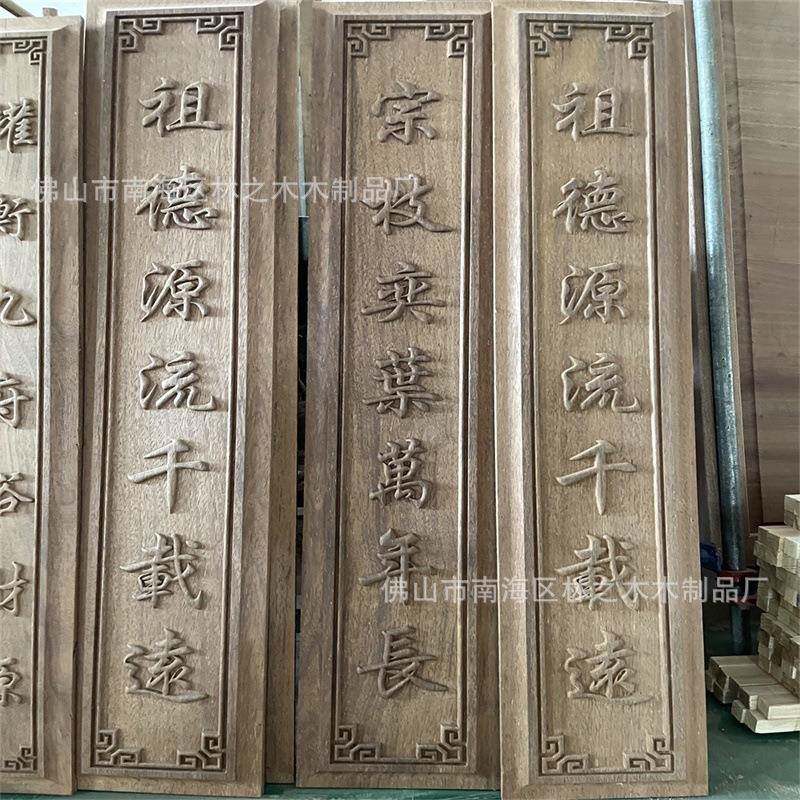 祖德源流千載遠
宗枝奕葉萬年長
祖德源流千載遠
佛山市南海区林之木木制品厂
佛山市南海区林之木木制品厂